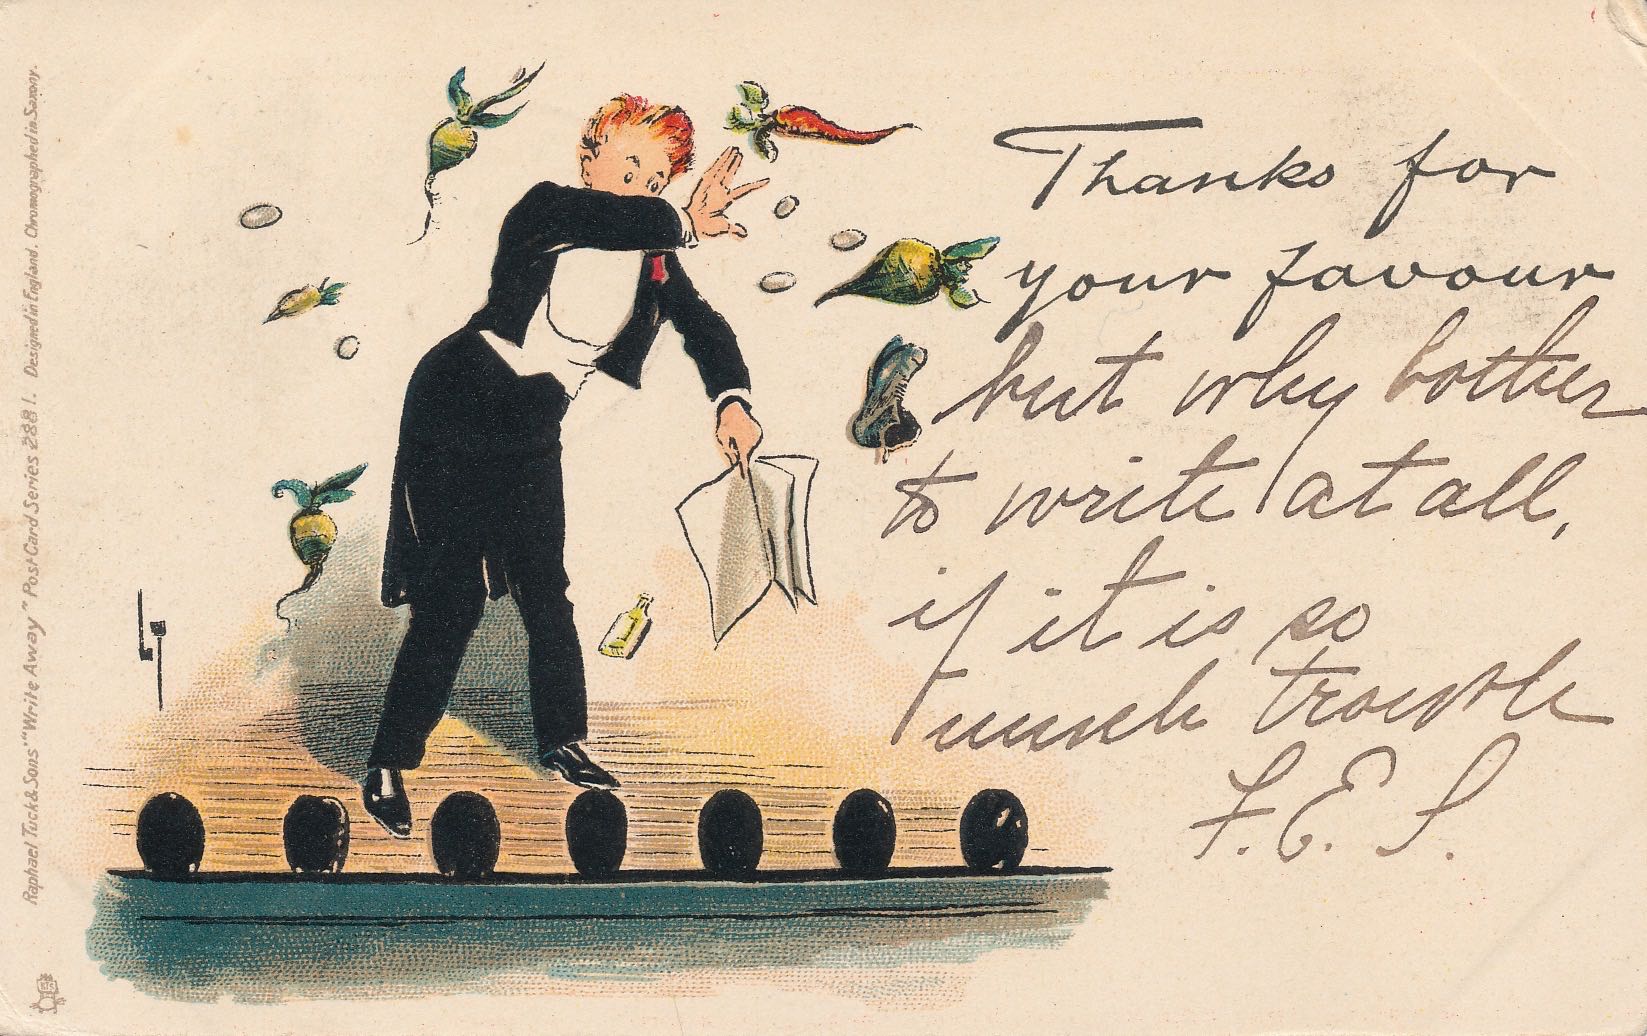 Thanks for
your favour
but why bother
to write at all,
if it is so
much trouble
F. E. S.
Raphael Tuck & Sons' "Write Away" Post Card Series 2881. Designed in England. Chromographed in Saxony.